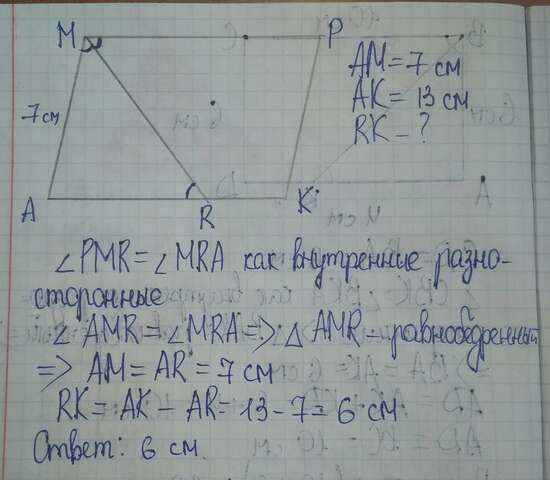 M
C
P
B
AM = 7 см
AK = 13 см
RK – ?
7 см
6 см
D
A
A
R
K
4 см
∠PMR = ∠MRA как внутренние разно-
сторонные
∠ AMR = ∠MRA => △ AMR – равнобедренный
=> AM = AR = 7 см
RK = AK – AR = 13 - 7 = 6 см
Ответ: 6 см.